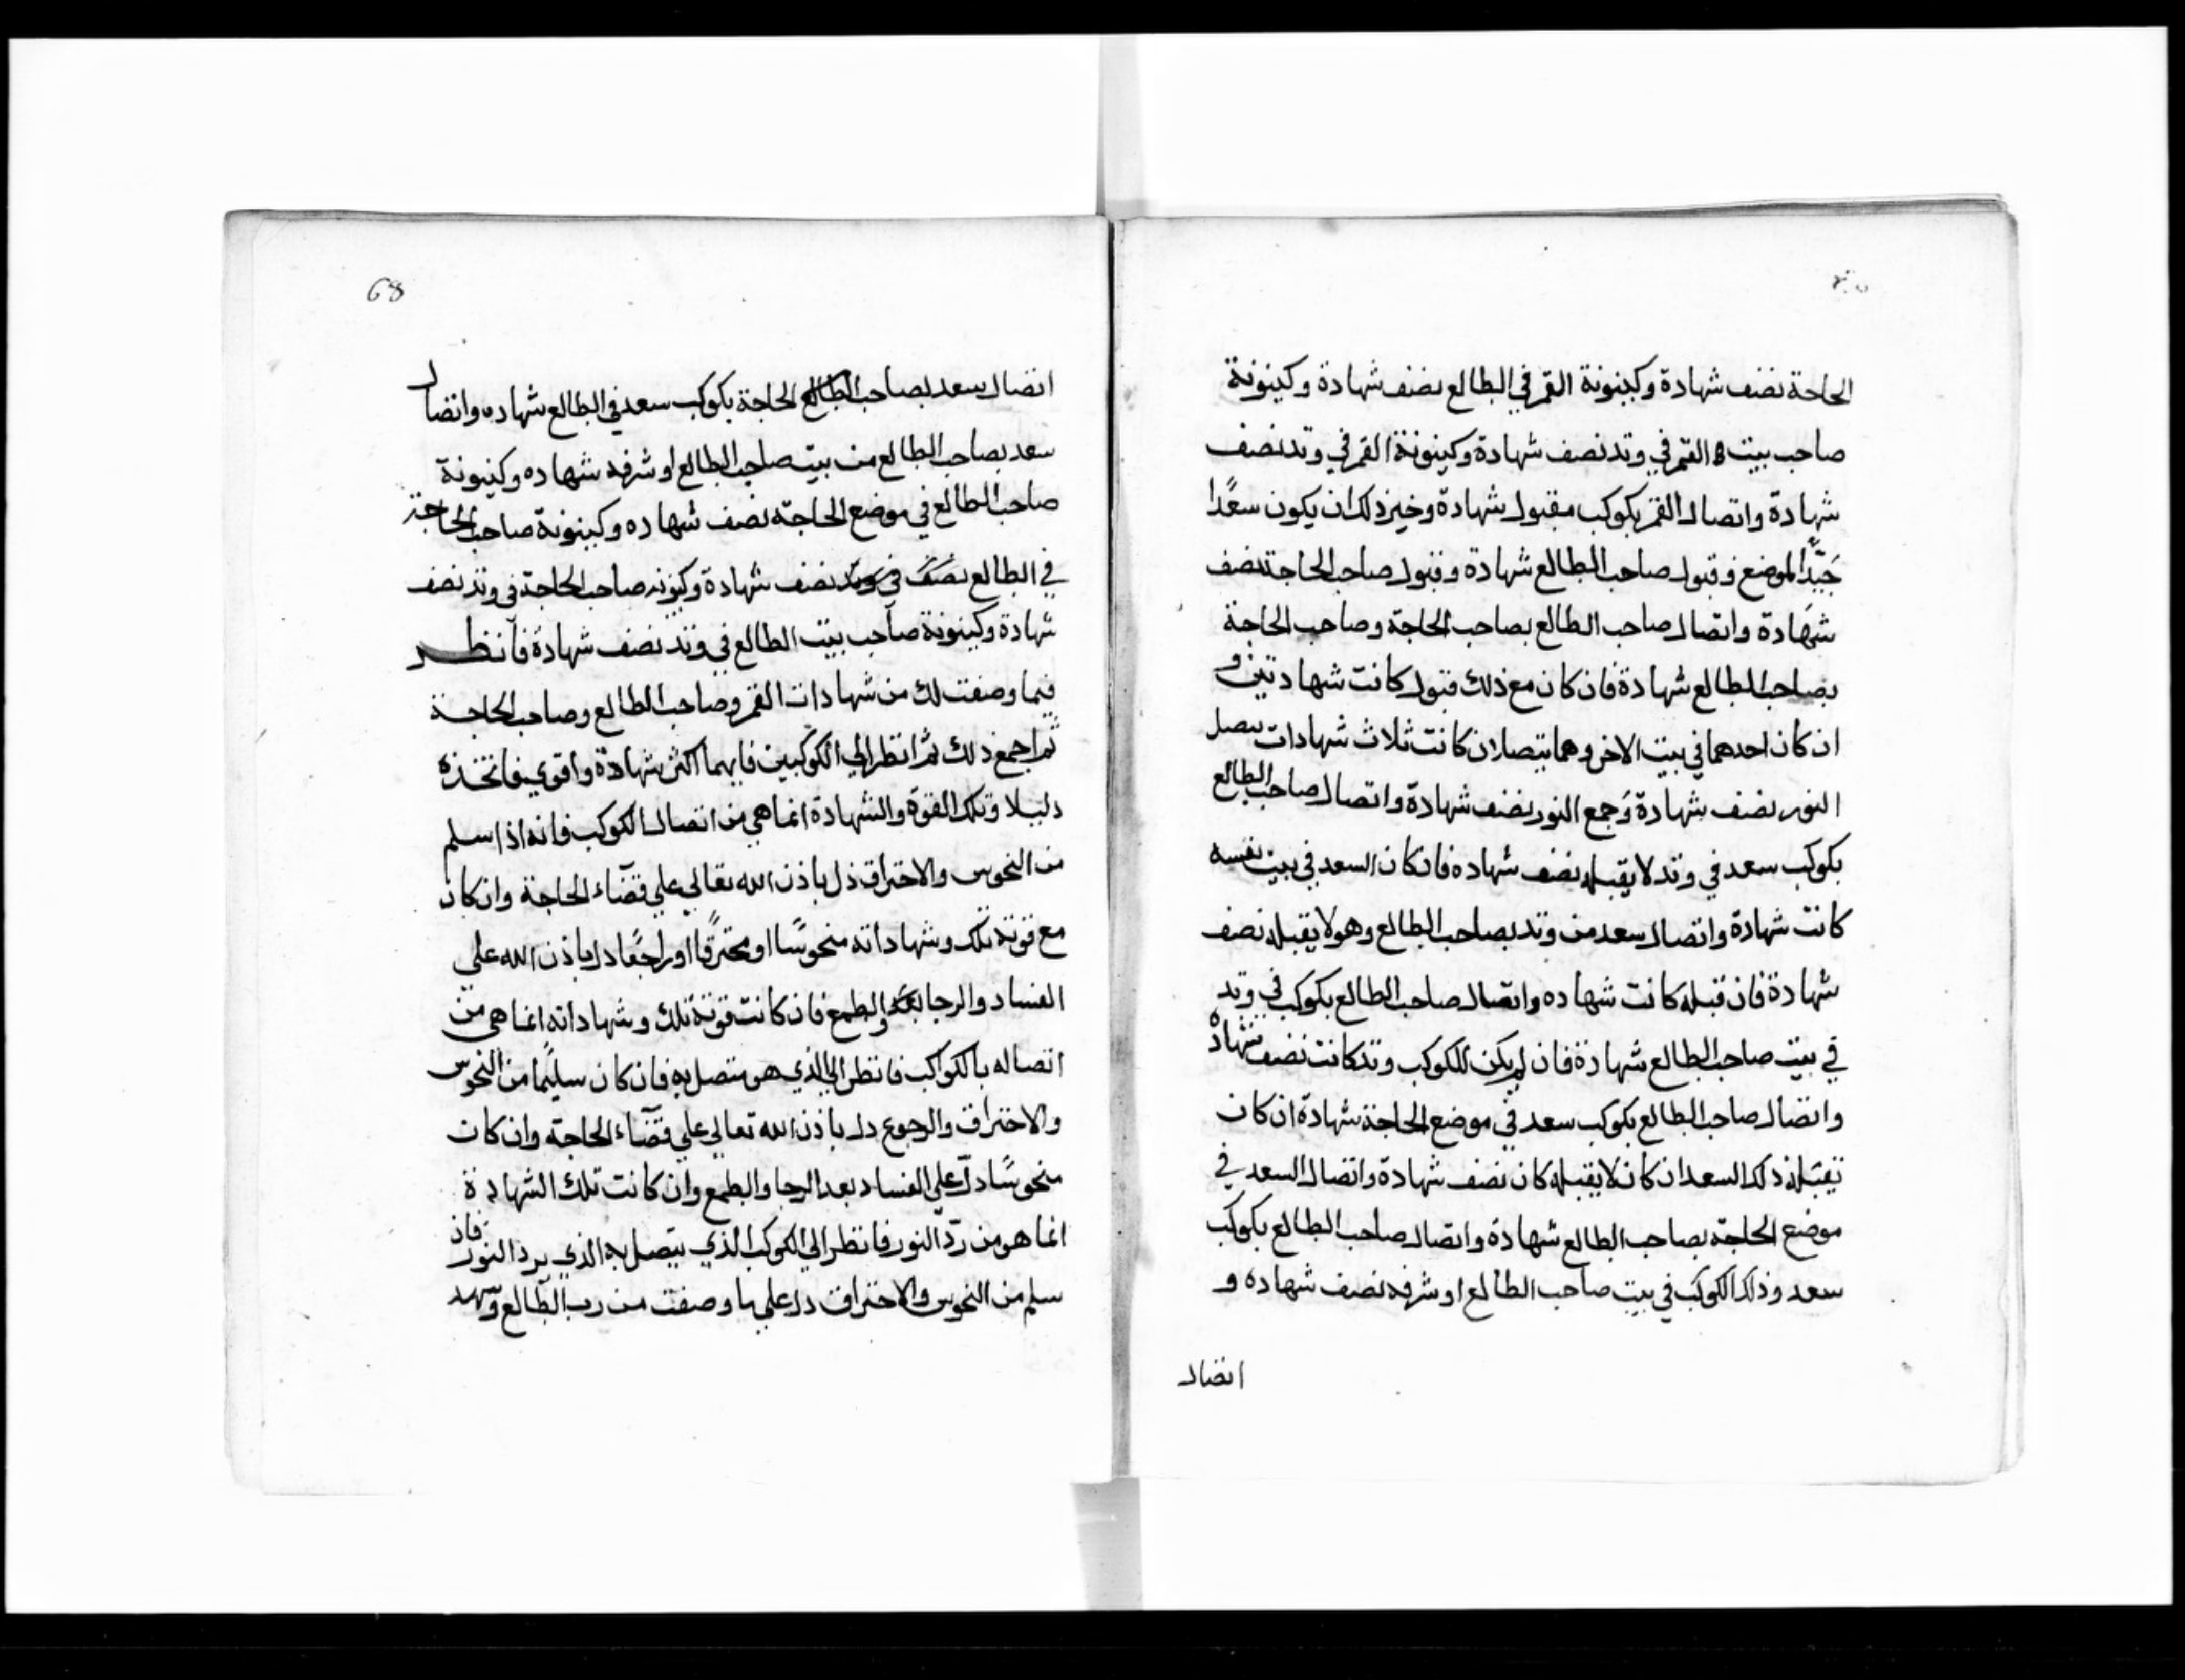 الحاجة نصف شهادة وكينونة القمر في الطالع نصف شهادة وكينونة
صاحب بيت القمر في وتد نصف شهادة وكينونة القمر في وتد نصف
شهادة واتصال القمر بكوكب مقبول شهادة وخير ذلك ان يكون سعدًا
جيّد الموضع وقبول صاحب الطالع شهادة وقبول صاحب الحاجة نصف
شهادة واتصال صاحب الطالع بصاحب الحاجة وصاحب الحاجة
بصاحب الطالع شهادة فان كان مع ذلك قبول كانت شهادتين و
ان كان احدهما في بيت الاخر وهما يتصلان كانت ثلاث شهادات
النور نصف شهادة وجمع النور نصف شهادة واتصال صاحب الطالع
بكوكب سعد في وتد لا يقبله نصف شهاده فان كان السعد في بيت نفسه
كانت شهادة واتصال سعد من وتد بصاحب الطالع وهو لا يقبله نصف
شهادة فان قبله كانت شهاده واتصال صاحب الطالع بكوكب في وتد
في بيت صاحب الطالع شهادة فان لم يكن للكوكب وتد كانت نصف شهادة
واتصال صاحب الطالع بكوكب سعد في موضع الحاجة شهادة ان كان
يقبله ذلك السعد ان كان لا يقبله كان نصف شهادة واتصال السعد في
موضع الحاجة بصاحب الطالع شهادة واتصال صاحب الطالع بكوكب
سعد وذلك الكوكب في بيت صاحب الطالع او شرفه نصف شهاده و
اتصال
68
اتصال سعد بصاحب الحاجة بكوكب سعد في الطالع شهاده واتصال
سعد بصاحب الطالع من بيت صاحب الطالع او شرفه شهاده وكينونة
صاحب الطالع في موضع الحاجة نصف شهاده وكينونة صاحب الحاجة
في الطالع نصف شهادة وكينونه صاحب الحاجة في وتد نصف
شهادة وكينونة صاحب بيت الطالع في وتد نصف شهادة فانظر
فيما وصفت لك من شهادات القمر وصاحب الطالع وصاحب الحاجة
ثم اجمع ذلك ثم انظر الي الكوكبين فايهما اكثر شهادة واقوي فاتخذه
دليلا وتلك القوة والشهادة انما هي من اتصال الكوكب فانه اذا سلم
من النحوس والاحتراق دل باذن الله تعالي علي قضاء الحاجة وان كان
مع قوته تلك وشهاداته منحوسًا او محترقًا او راجعًا دل باذن الله علي
الفساد والرجا والطمع فان كانت قوته تلك وشهاداته انما هي من
اتصاله بالكواكب فانظر الي الذي هو متصل به فان كان سليمًا من النحوس
والاحتراق والرجوع دل باذن الله تعالي علي قضاء الحاجة وان كان
منحوسًا دل علي الفساد بعد الرجا والطمع وان كانت تلك الشهادة
انما هو من ردّ النور فانظر الي الكوكب الذي يتصل به الذي يرد النور فان
سلم من النحوس والاحتراق دل علي ما وصفت من رب الطالع